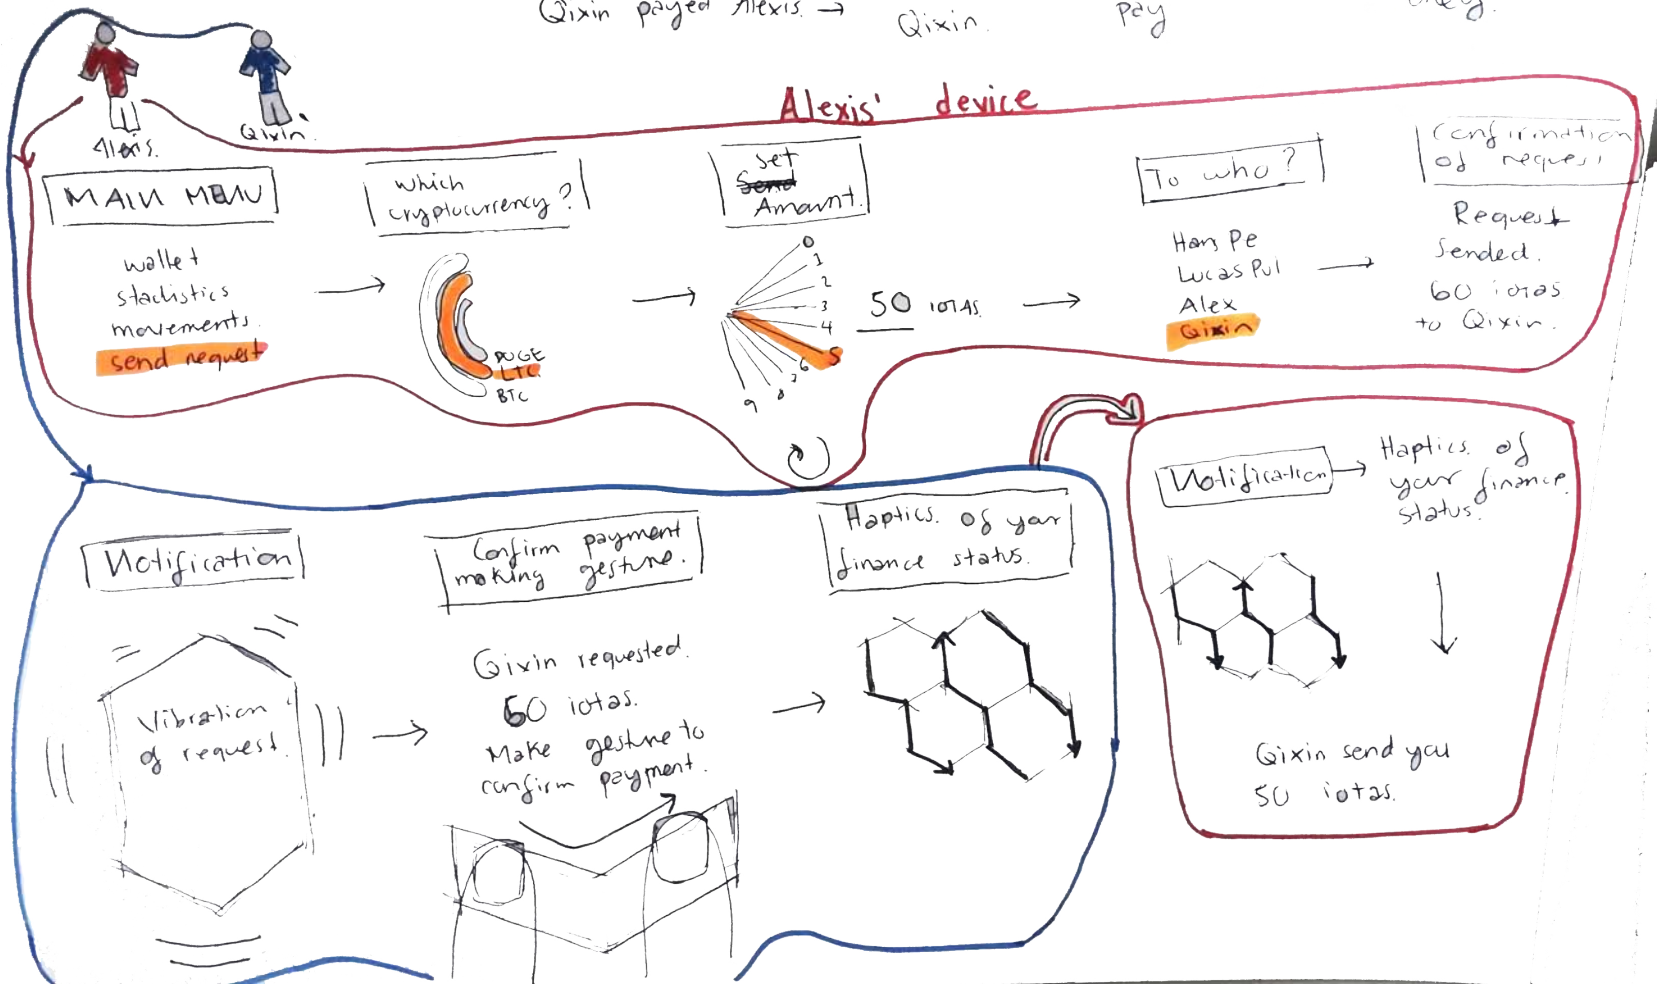 Qixin payed Alexis. →
Qixin.
pay
Alexis.
Qixin.
Alexis' device
MAIN MENU
wallet
stadistics
movements.
send request
Which
cryptocurrency?
DOGE
LTC
BTC
set
Send
Amount.
0
1
2
3
4
5
6
7
8
9
50 IOTAS.
To who?
Hans Pe
Lucas Pul
Alex
Qixin
Confirmation
of request
Request
Sended.
60 iotas
to Qixin.
Notification
Vibration
of request.
Confirm payment
making gesture.
Qixin requested.
60 iotas.
Make gesture to
confirm payment.
Haptics. of your
finance status.
Notification
Haptics. of
your finance.
status.
Qixin send you
50 iotas.